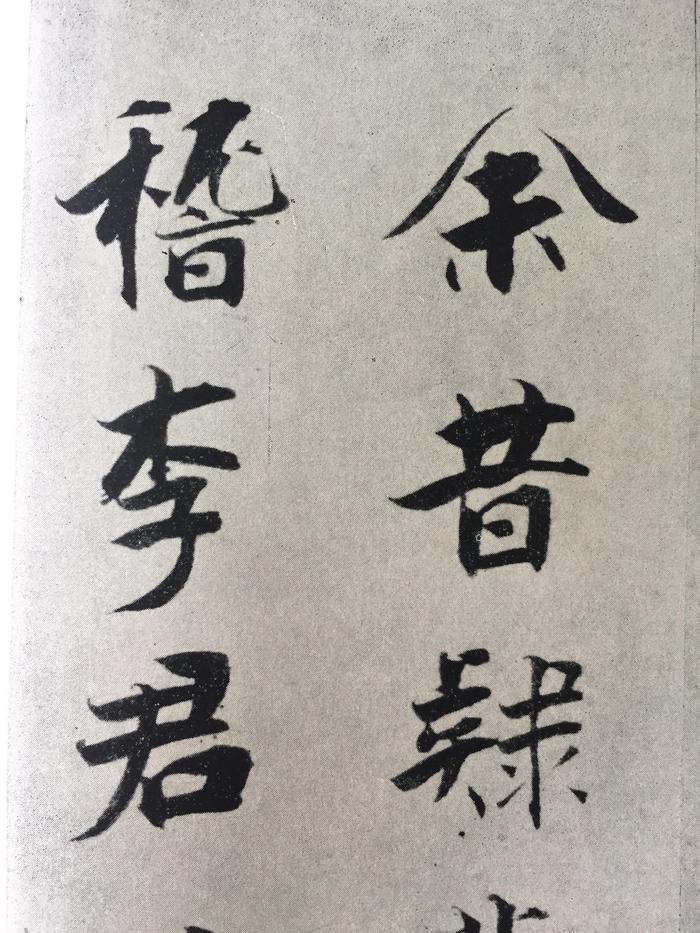 余昔隸
稽李君